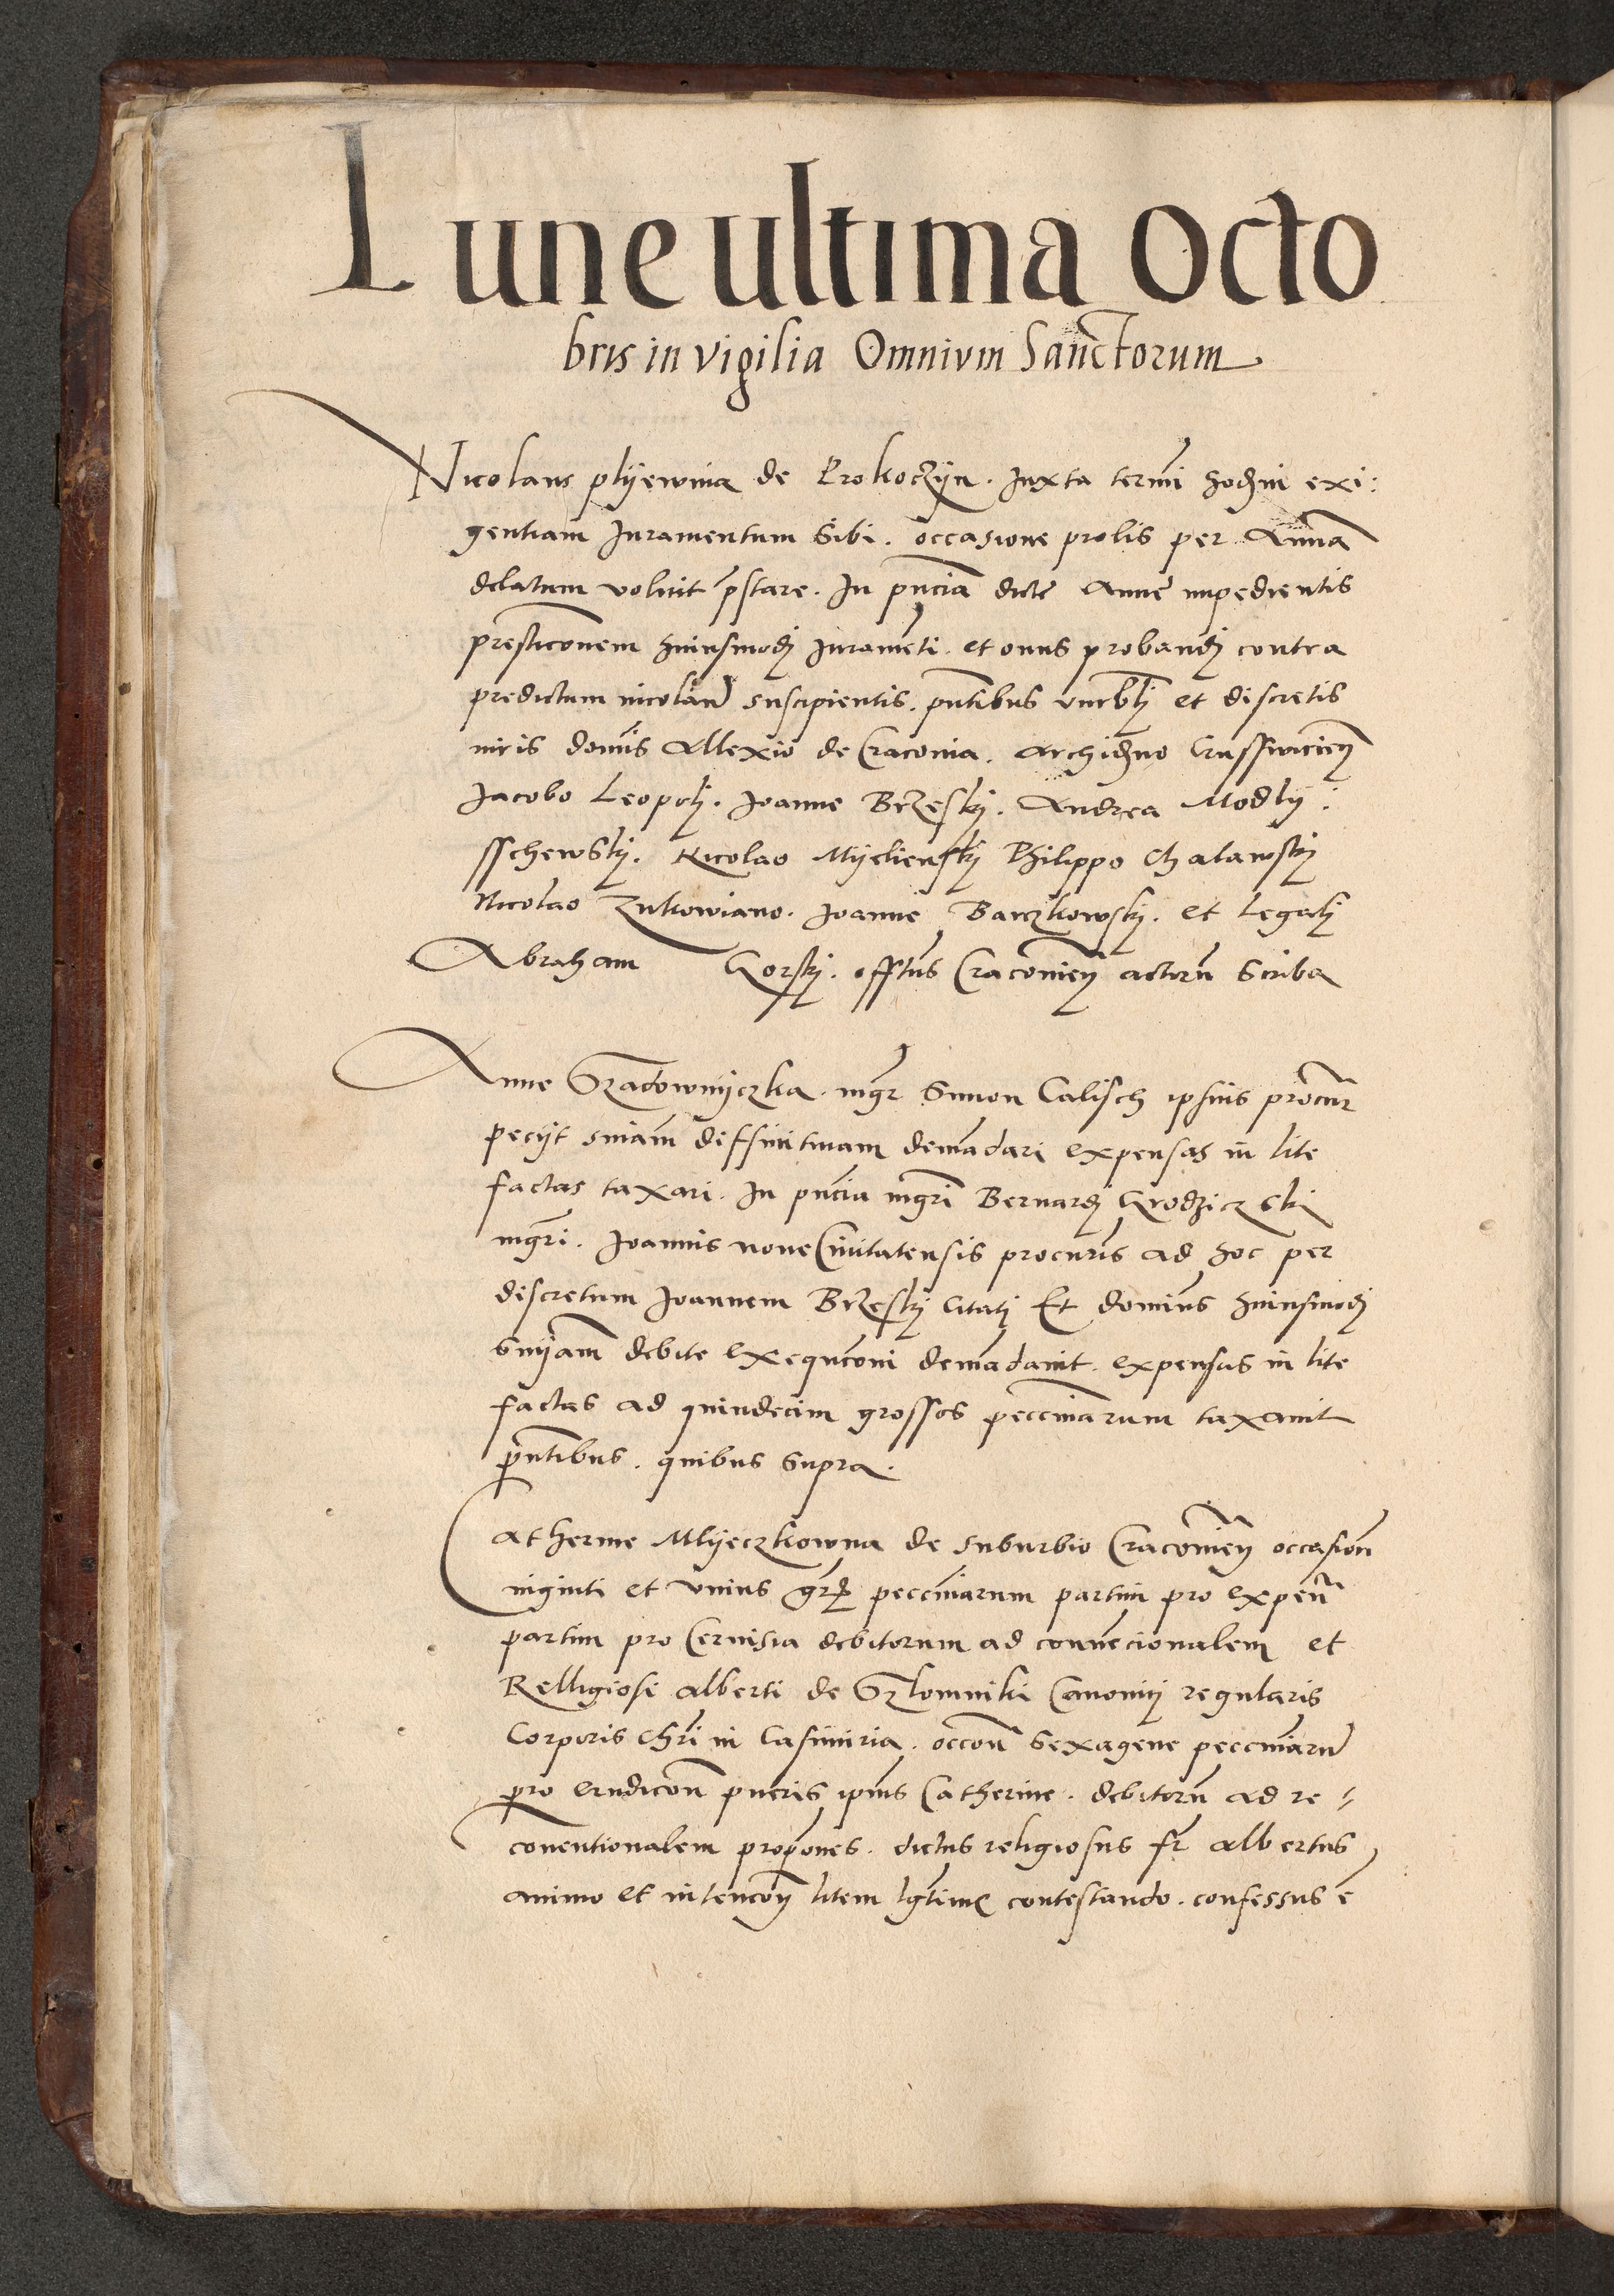 Lune ultima Octo
bris in vigilia Omnivm Sanctorum
Nicolaus plyewnia de Prokoczyn. Juxta termi hodni exi:
gentiam Juramentum Sibi. occasione prolis per Annā
delatum voluit p̄stare. In pn̄ciā dicte Anne impedientis
presticonem huiusmodj Juramēti. et onus probandj contra
predictum nicolaū suscipientis. pn̄tibus vnrblj et discretis
viris domis Allexio de Cracouia. Archidno Crusswicien
Jacobo Leopolj. Joanne Brzeskj. Andrea Modly:
sschewskj. Nicolao Myelienskj Philippo Chalawskj
Nicolao Zukowiano. Joanne Barzkowskj. et Legalj
Abraham Gorskj. offtus Cracouien actorū Scriba
Anne Gradownyczka. mgr Simon Calisch ipsius procur
pecyt sniam diffinitiuam demādari expensas in lite
factas taxari. In pn̄cia mgri Bernardj Grodziczski
mgri. Joannis noue Ciuitatensis procuris ad hoc per
discretum Joannem Brzeskj Citatj Et dominus huiusmodj
Snyam debite exequcōni demādauit. expensas in lite
factas ad quindecim grossos pecuniarum taxauit
pn̄tibus. quibus supra.
Catherine Mlyeczkowna de suburbio Cracouien occasion
viginti et vnius gr pecuniarum partim pro expeñ
partim pro Ceruisia debitorum ad conuēcionalem et
Relligiosi Alberti de Szlomniki Canonici regularis
Corporis chri in Casimiria. occoñ sexagene pecuniarū
pro erudicoñ pueris ipius Catherine. debitorū ad re-
conuentionalem propones. dictus religiosus fr Albertus
animo et intencoñ litem lgtime contestando. confessus ē